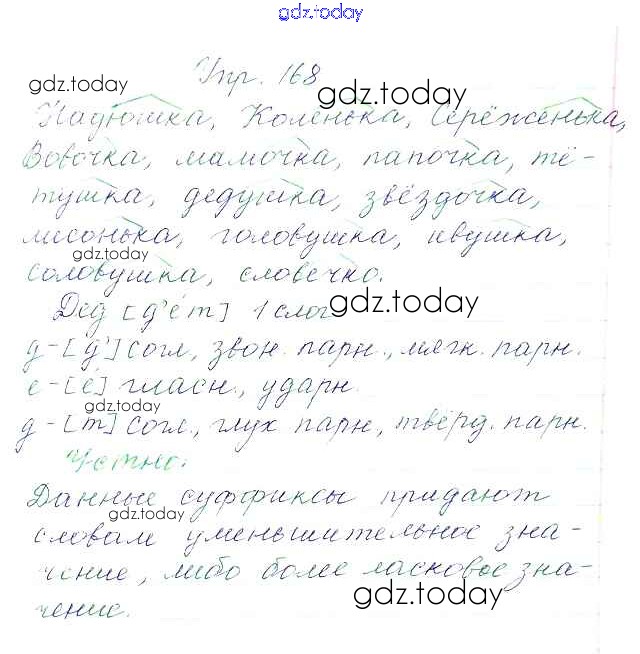 gdz.today
Упр. 168
gdz.today
gdz.today
Надюшка, Коленька, Серёженька,
Вовочка, мамочка, папочка, тё-
тушка, дедушка, звёздочка,
лисонька, головушка, ивушка,
gdz.today
соловушка, словечко.
Дед [д'éт] 1 слог
gdz.today
д-[д'] согл., звон. парн., мягк. парн.
е-[é] гласн., ударн.
gdz.today
д-[т] согл., глух парн., твёрд. парн.
Устно:
Данные суффиксы придают
gdz.today
словам уменьшительное зна-
чение, либо более ласковое зна-
gdz.today
чение.